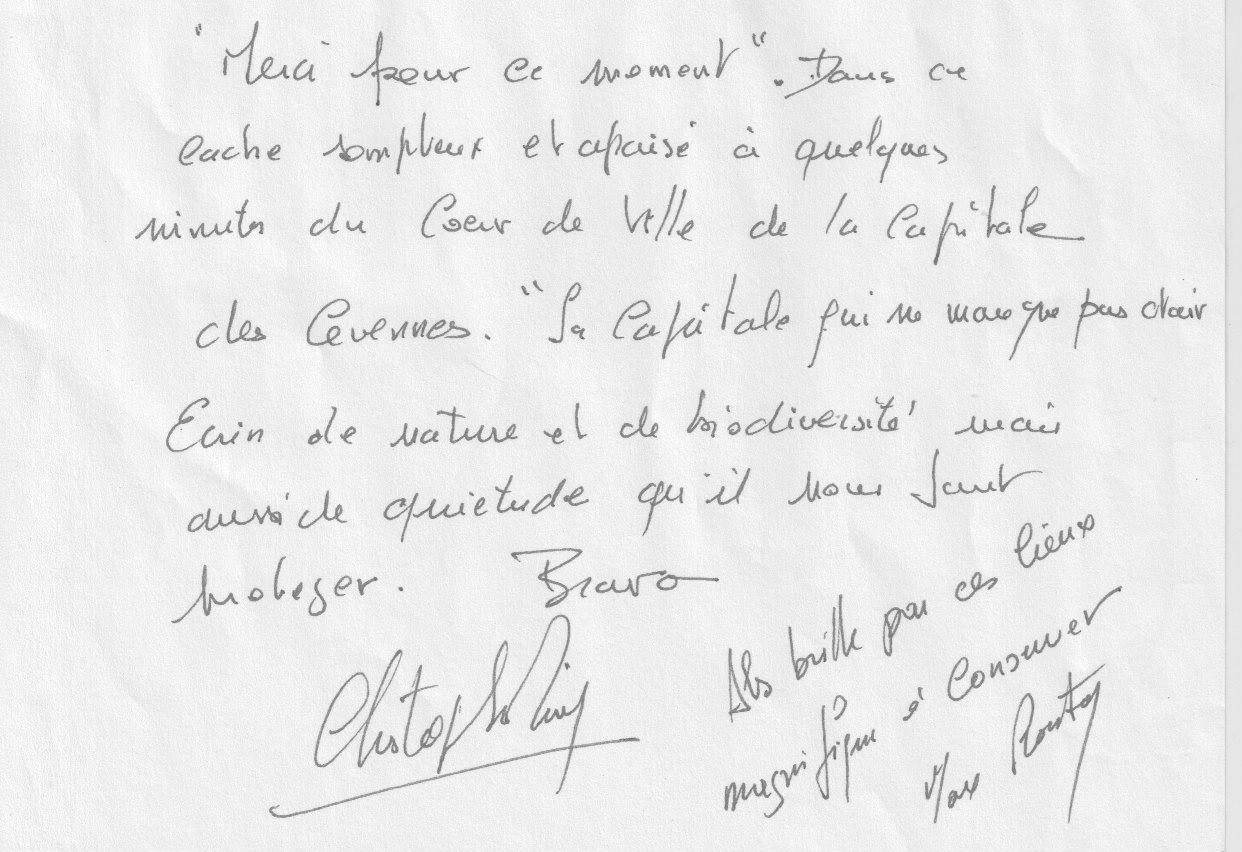 "Merci pour ce moment". Dans ce
cache somptueux et apaisé à quelques
minutes du Coeur de Ville de la Capitale
des Cevennes. "La Capitale qui ne manque pas d'air
Ecrin de nature et de biodiversité mais
aussi de quiétude qu'il nous faut
proteger. Bravo
Christophe
Alès brille par ces lieux
magnifique à Conserver
Max